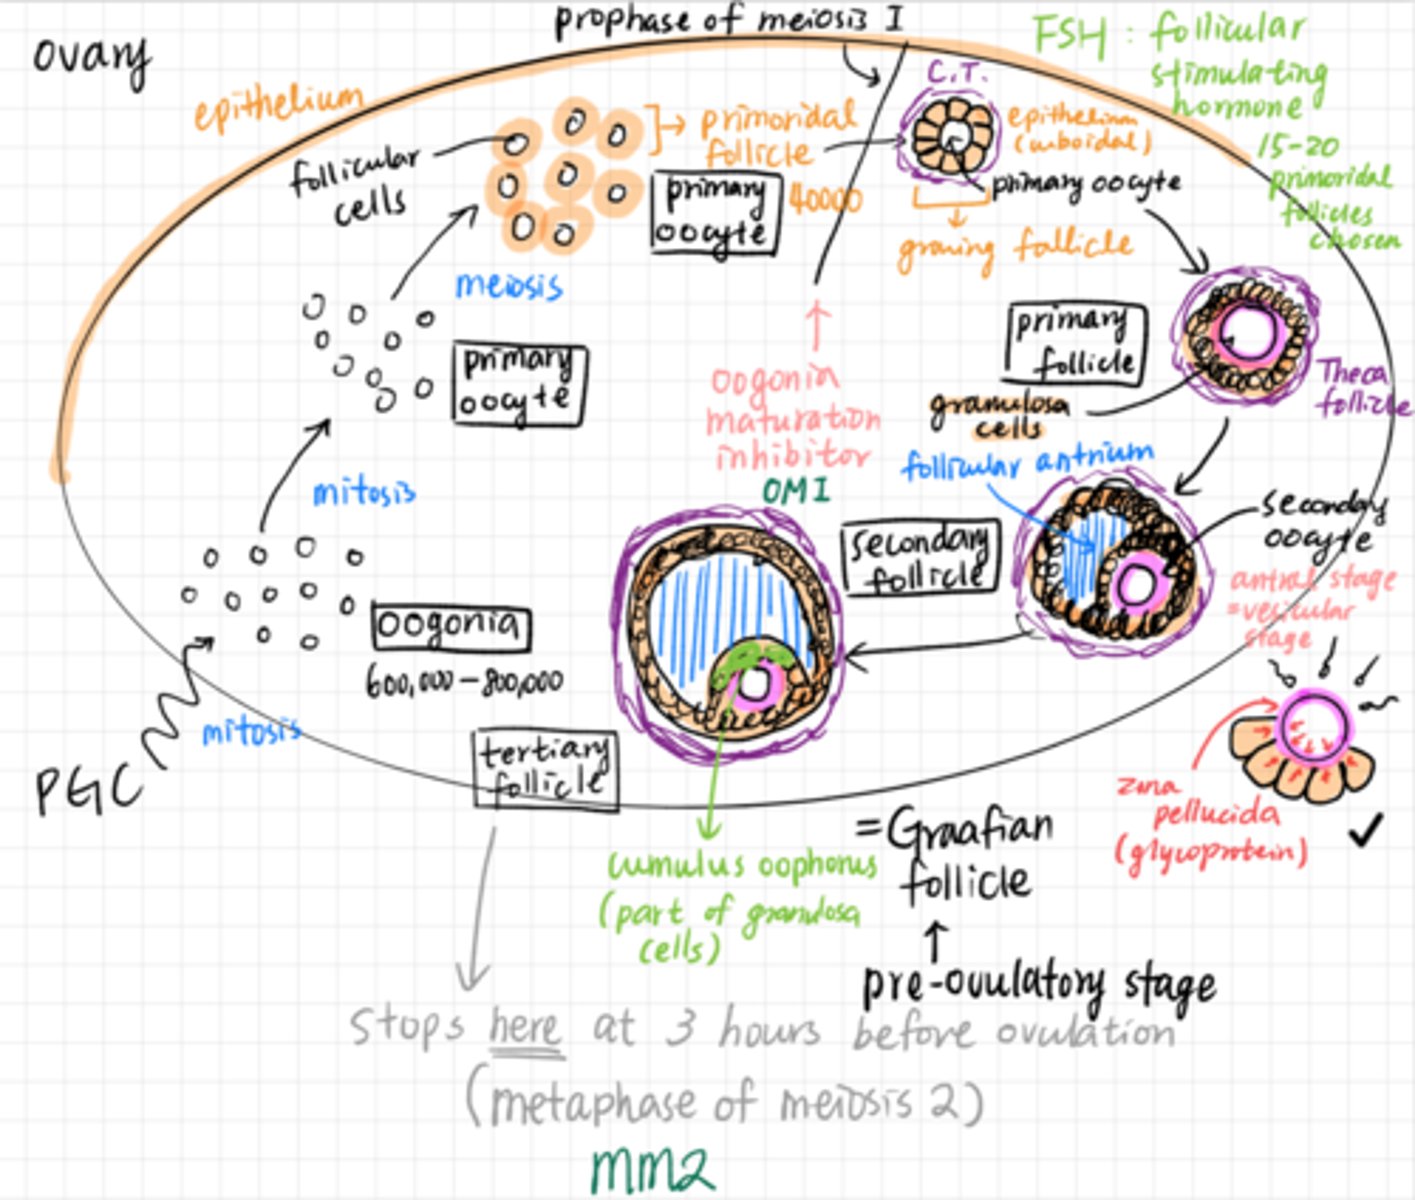 ovary
prophase of meiosis I
FSH : follicular
stimulating
hormone
15-20
primoridal
follicles
chosen
epithelium
follicular
cells
primoridal
follicle
40000
primary
oocyte
C.T.
epithelium
(cuboidal)
primary oocyte
growing follicle
meiosis
primary
oocyte
mitosis
oogonia
600,000-800,000
mitosis
PGC
oogonia
maturation
inhibitor
OMI
primary
follicle
granulosa
cells
Theca
follicle
follicular antrium
secondary
follicle
secondary
oocyte
antral stage
=vesicular
stage
zona
pellucida
(glycoprotein)
tertiary
follicle
cumulus oophorus
(part of granulosa
cells)
=Graafian
follicle
pre-ovulatory stage
Stops here at 3 hours before ovulation
(metaphase of meiosis 2)
MM2